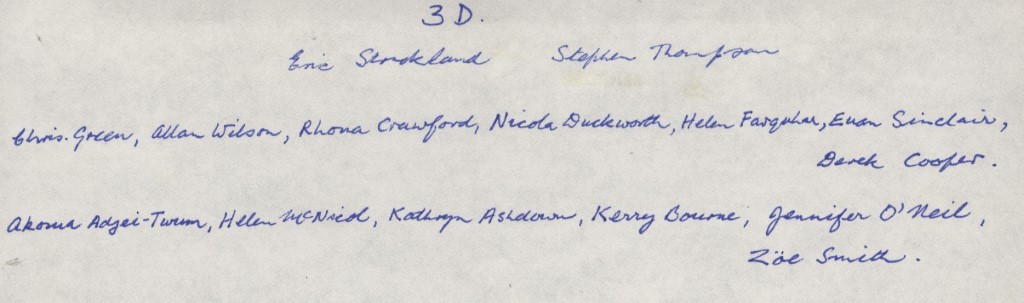 3D.
Eric Strickland Stephen Thompson
Chris. Green, Allan Wilson, Rhona Crawford, Nicola Duckworth, Helen Farquhar, Euan Sinclair,
Derek Cooper.
Akosua Adjei-Twum, Helen McNicol, Kathryn Ashdown, Kerry Bourne, Jennifer O'Neil,
Zöe Smith.